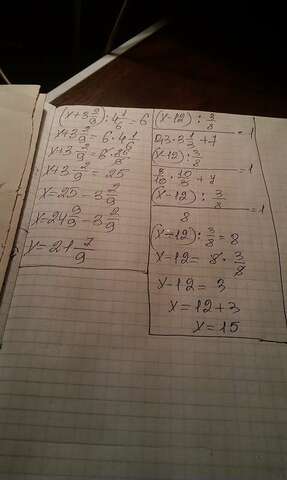 (x+3 2/9) : 4 1/6 = 6
x+3 2/9 = 6 · 4 1/6
x+3 2/9 = 6 · 25/6
x+3 2/9 = 25
x=25-3 2/9
x=24 9/9-3 2/9
x=21 7/9
(x-12) : 3/8
0,3 · 3 1/3 + 7
=1
(x-12) : 3/8
3/10 · 10/3 + 7
=1
(x-12) : 3/8
8
=1
(x-12) : 3/8 = 8
x-12= 8 · 3/8
x-12= 3
x=12+3
x=15